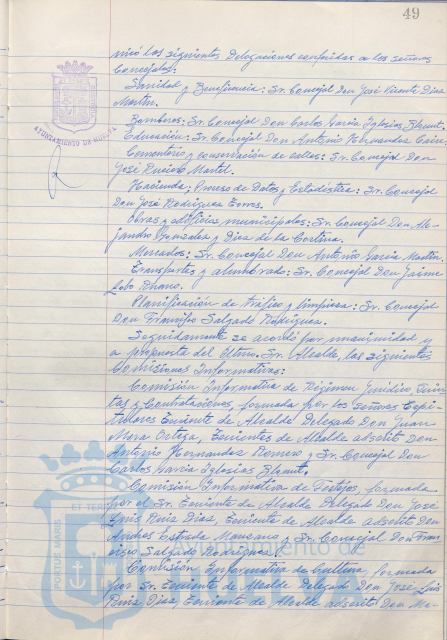 49
nicó las siguientes Delegaciones conferidas a los señores
Concejales:
Sanidad y Beneficencia: Sr. Concejal Don José Vicente Díaz
Martín.
Bomberos: Sr. Concejal Don Carlos García Iglesias Flament.
Educación: Sr. Concejal Don Antonio Hernández
Cementerio y conservación de calles: Sr. Concejal Don
José Martel.
Hacienda; Proceso de Datos y Estadística: Sr. Concejal
Don José Rodríguez
Obras y edificios municipales: Sr. Concejal Don Ale-
jandro González y Díaz de la Cortina.
Mercados: Sr. Concejal Don Antonio García Martín.
Transportes y alumbrado: Sr. Concejal Don Jaime
Lobo
Planificación de Tráfico y limpieza: Sr. Concejal
Don Francisco Salgado Rodríguez.
Seguidamente se acordó por unanimidad y
a propuesta del Iltmo. Sr. Alcalde, las siguientes
Comisiones Informativas:
Comisión Informativa de Régimen Jurídico,
y Contrataciones, formada por los señores Capi-
tulares Teniente de Alcalde Delegado Don Juan
Mora Ortega, Tenientes de Alcalde adscrito Don
Antonio Hernández Romero y Sr. Concejal Don
Carlos García Iglesias Flament.
Comisión Informativa de Festejos, formada
por el Sr. Teniente de Alcalde Delegado Don José
Luis Ruiz Díaz, Teniente de Alcalde adscrito Don
Andrés Estrada Manzano y Sr. Concejal Don Fran-
cisco Salgado Rodríguez.
Comisión Informativa de Cultura, formada
por Sr. Teniente de Alcalde Delegado Don José Luis
Ruiz Díaz, Teniente de Alcalde adscrito Don Ma-
AYUNTAMIENTO DE HUELVA
PORTUS MARIS
ET TERRAE
Ayuntamiento de
HUELVA